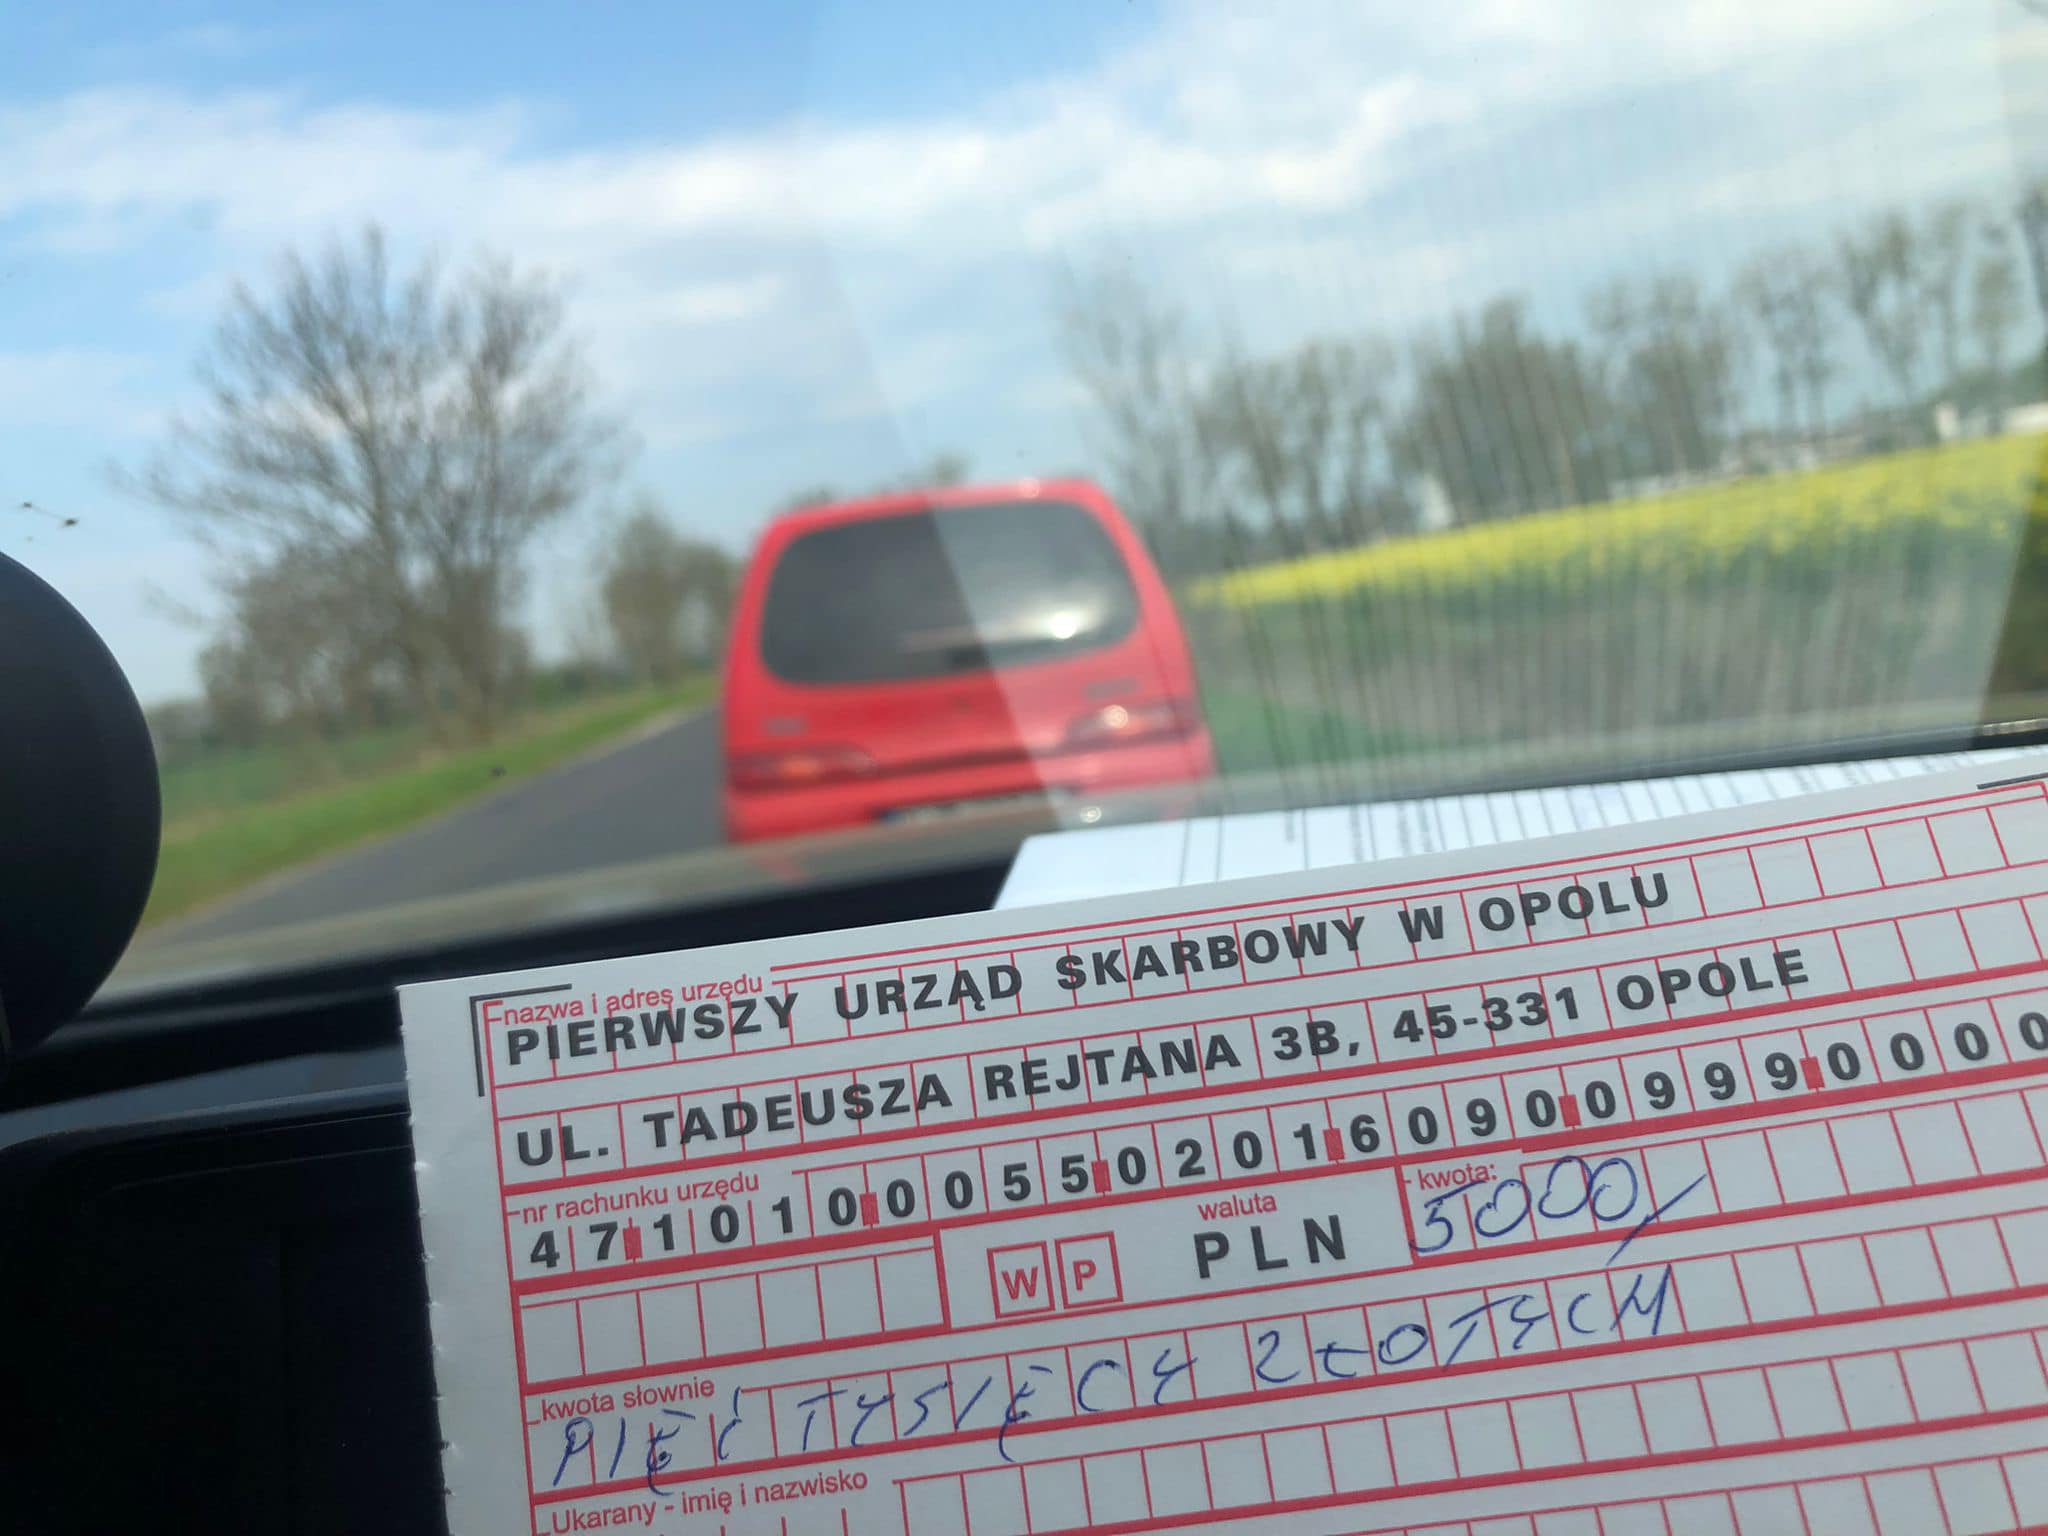 nazwa i adres urzędu
PIERWSZY URZĄD SKARBOWY W OPOLU
UL. TADEUSZA REJTANA 3B, 45-331 OPOLE
nr rachunku urzędu
47101000550201609009990000
W P
waluta
PLN
kwota:
5000/
kwota słownie
PIĘĆ TYSIĘCY ZŁOTYCH
Ukarany - imię i nazwisko